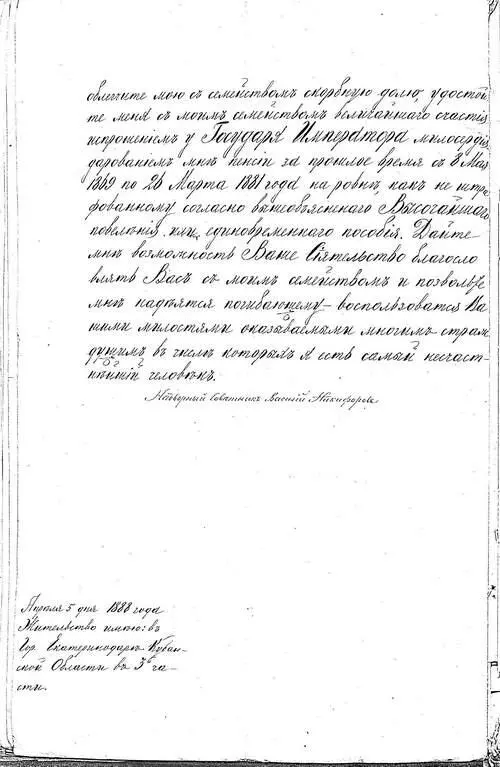 облегчите мою съ семействомъ скорбную долю, удостой
те меня съ моимъ семействомъ величайшаго счастія
испрошеніемъ у Государя Императора милосердія
дарованіемъ мнѣ пенсіи за прошлое время съ 8 Мая
1869 по 26 Марта 1881 года на ровнѣ какъ не штра
фованному согласно вышеобъясненаго Высочайшаго
повелѣнія или единовременнаго пособія. Дайте
мнѣ возможность Ваше Сіятельство благосло
влять Васъ съ моимъ семействомъ и позвольте
мнѣ надѣятся погибающему воспользоватся Ва
шими милостями оказываемыми многимъ страж
дущимъ въ числѣ которыхъ я есть самый несчаст
нѣйшій человѣкъ.
Надворный Совѣтникъ Василій Никифоровъ
Апрѣля 5 дня 1888 года
Жительство имѣю: въ
Гор. Екатеринодарѣ Кубан-
ской Области въ 3й ча-
сти.